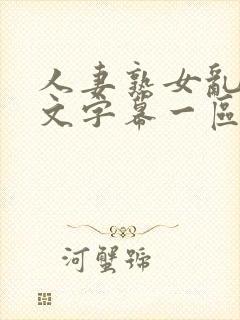 人妻熟女亂
文字幕一區
河蟹號